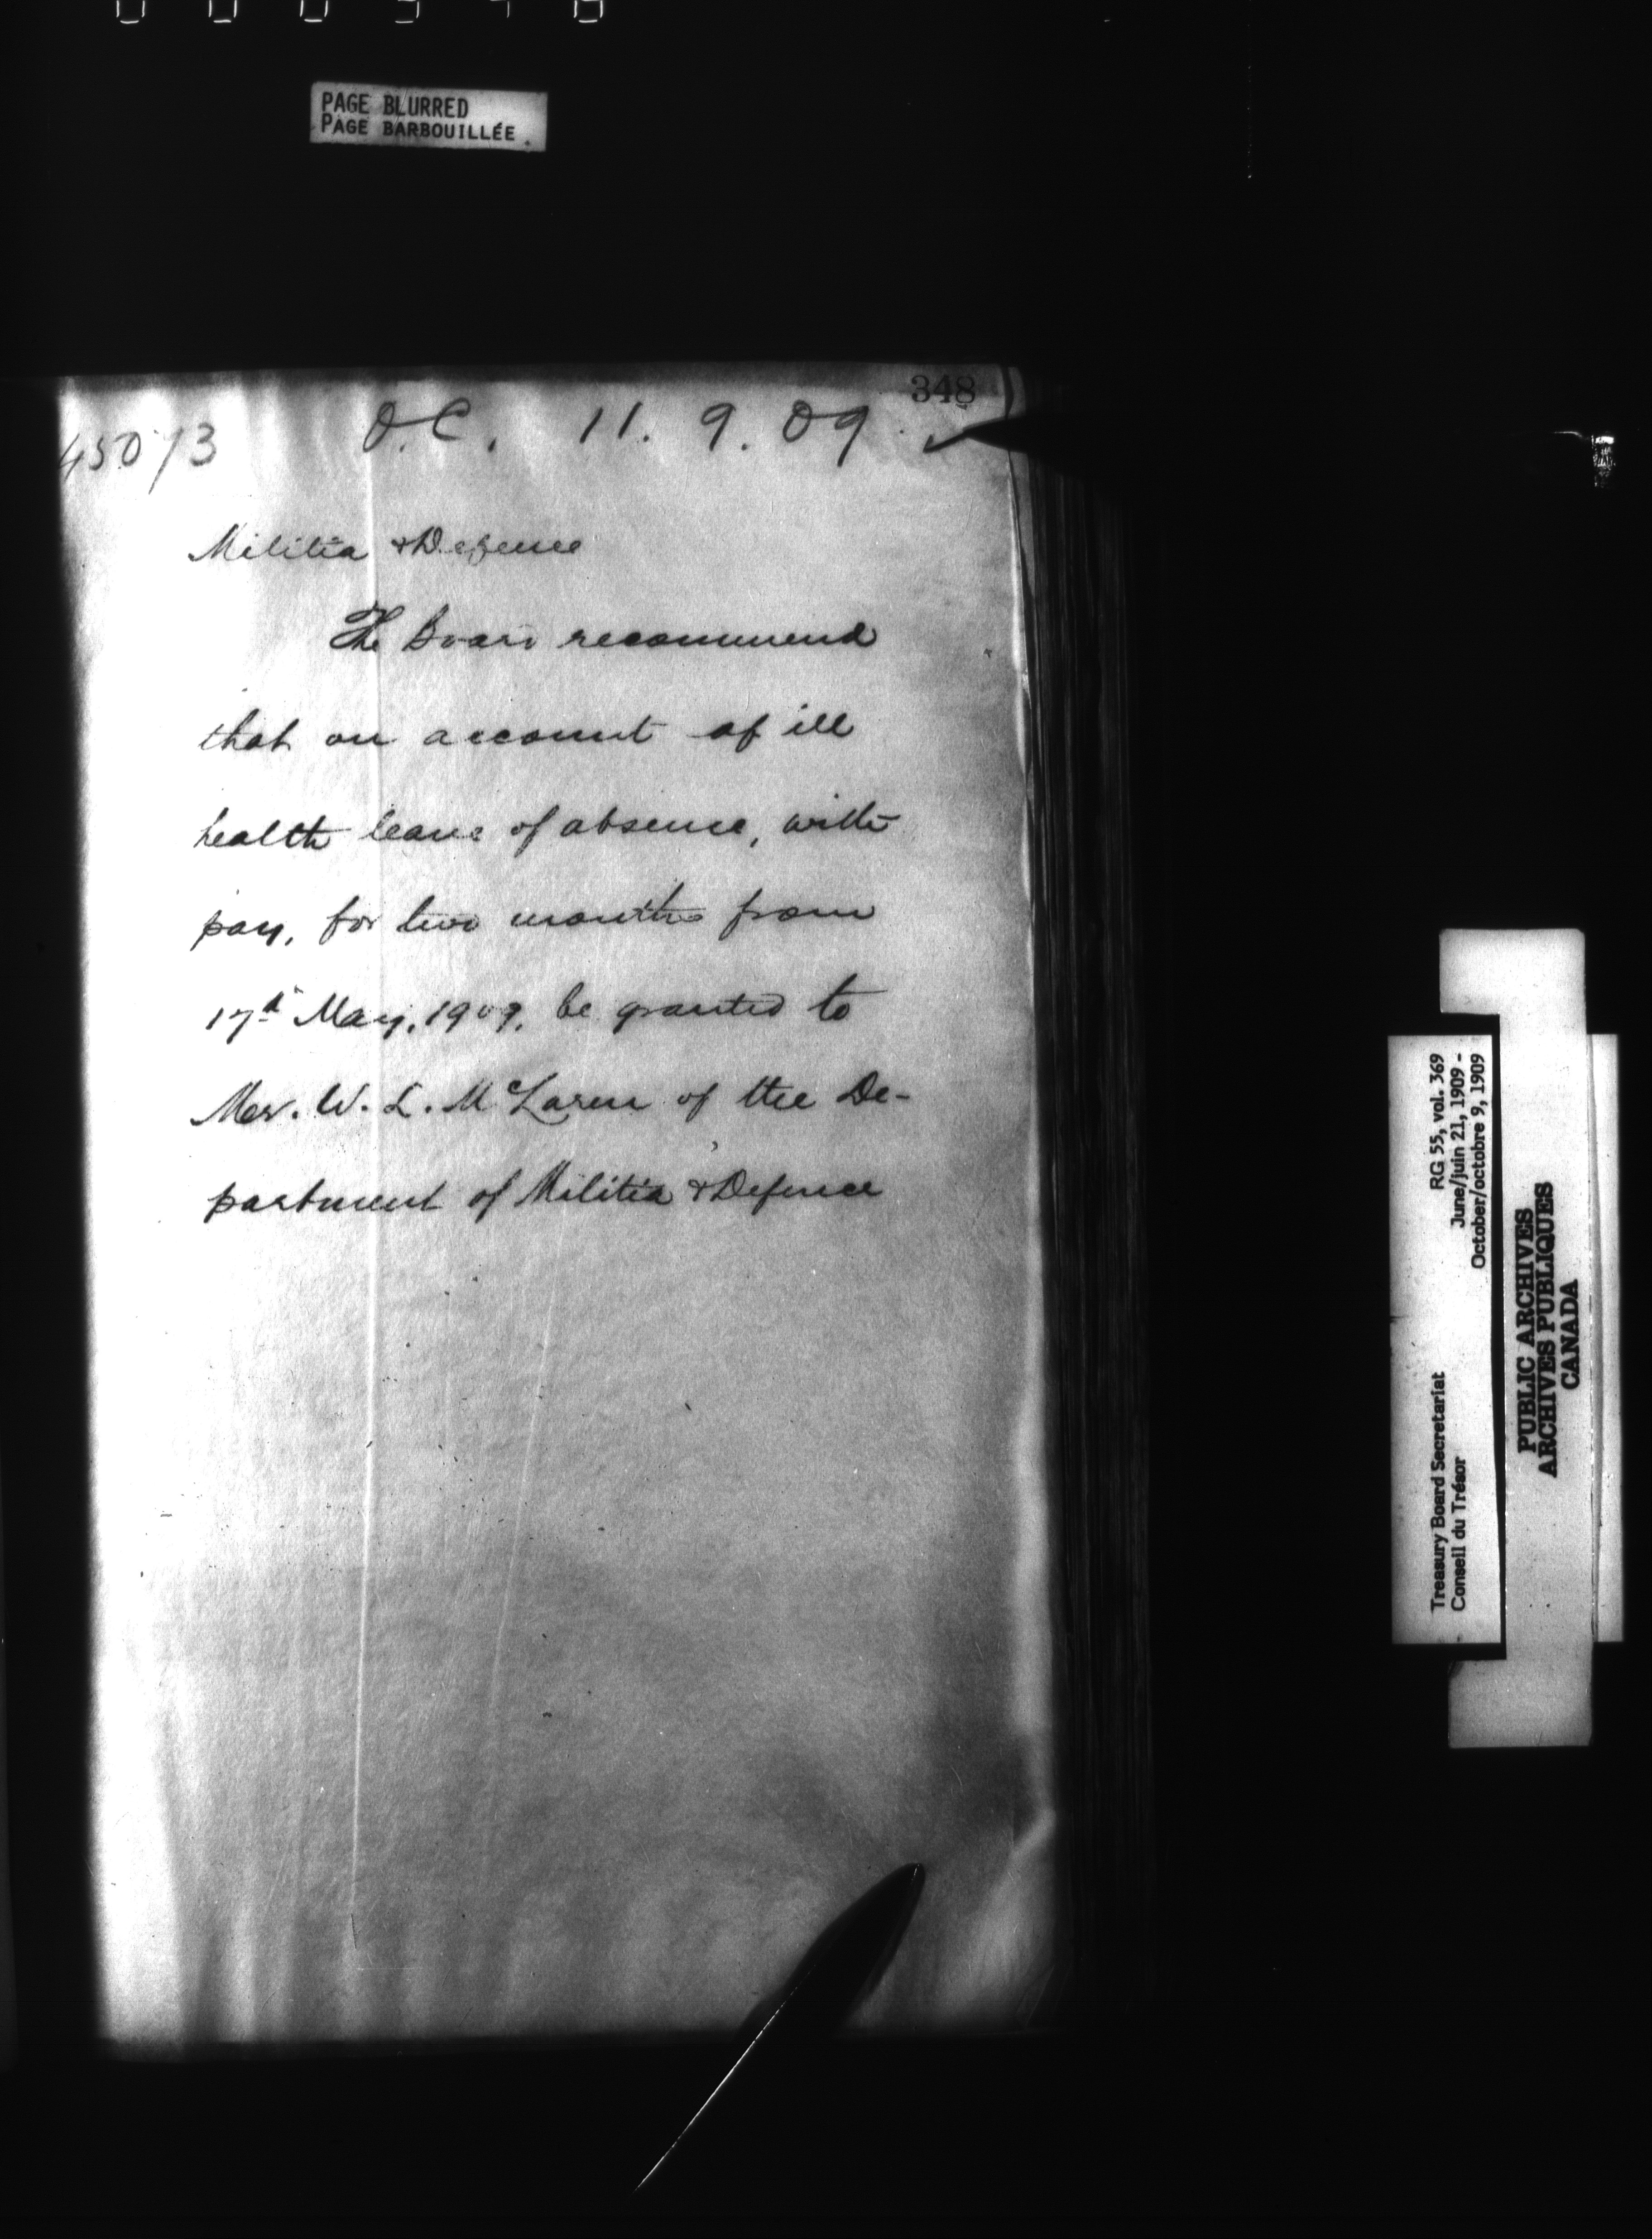 PAGE BLURRED
PAGE BARBOUILLÉE
348
O.C. 11. 9. 09
Militia & Defence
The Board recommend
that on account of ill
health leave of absence, with
pay, for two months from
17th May, 1909, be granted to
Mr. W. L. McLaren of the De-
partment of Militia & Defence
RG 55, vol. 369
June/juin 21, 1909 -
October/octobre 9, 1909
Treasury Board Secretariat
Conseil du Trésor
PUBLIC ARCHIVES
ARCHIVES PUBLIQUES
CANADA